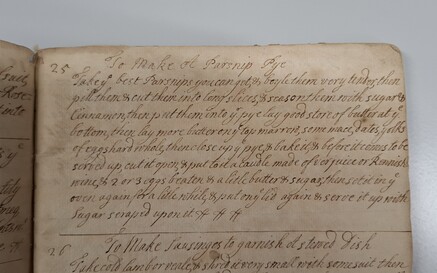 25 To Make A Parsnip Pye
Take yͤ best Parsnips you can get, & boyle them very tender, then
pill them & cut them into long slices, & season them with sugar &
Cinnamon, then put them into yͤ pye lay good store of butter at yͤ
bottom, then lay more butter on yͤ top marrow, some mace, dates, yolks
of eggs hard whole, then close up yͤ pye, & bake it, & before it comes to be
served up, cut it open, & put in a caudle made of verjuice or Rennish
wine, & 2 or 3 eggs beaten & a litle butter & sugar, then set it in yͤ
oven again for a litle while, & put on yͤ lid again & serve it up with
Sugar scraped upon it
26 To Make Sausinges to garnish A stewed Dish
Take cold lamb or veale, & shred it very small with some suit then